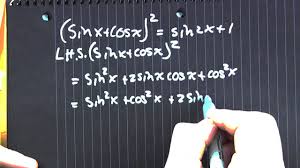 (sinx+cosx)² = sin2x+1
L.H.S. (sinx+cosx)²
= sin²x + 2sinx cosx + cos²x
= sin²x + cos²x + 2sin